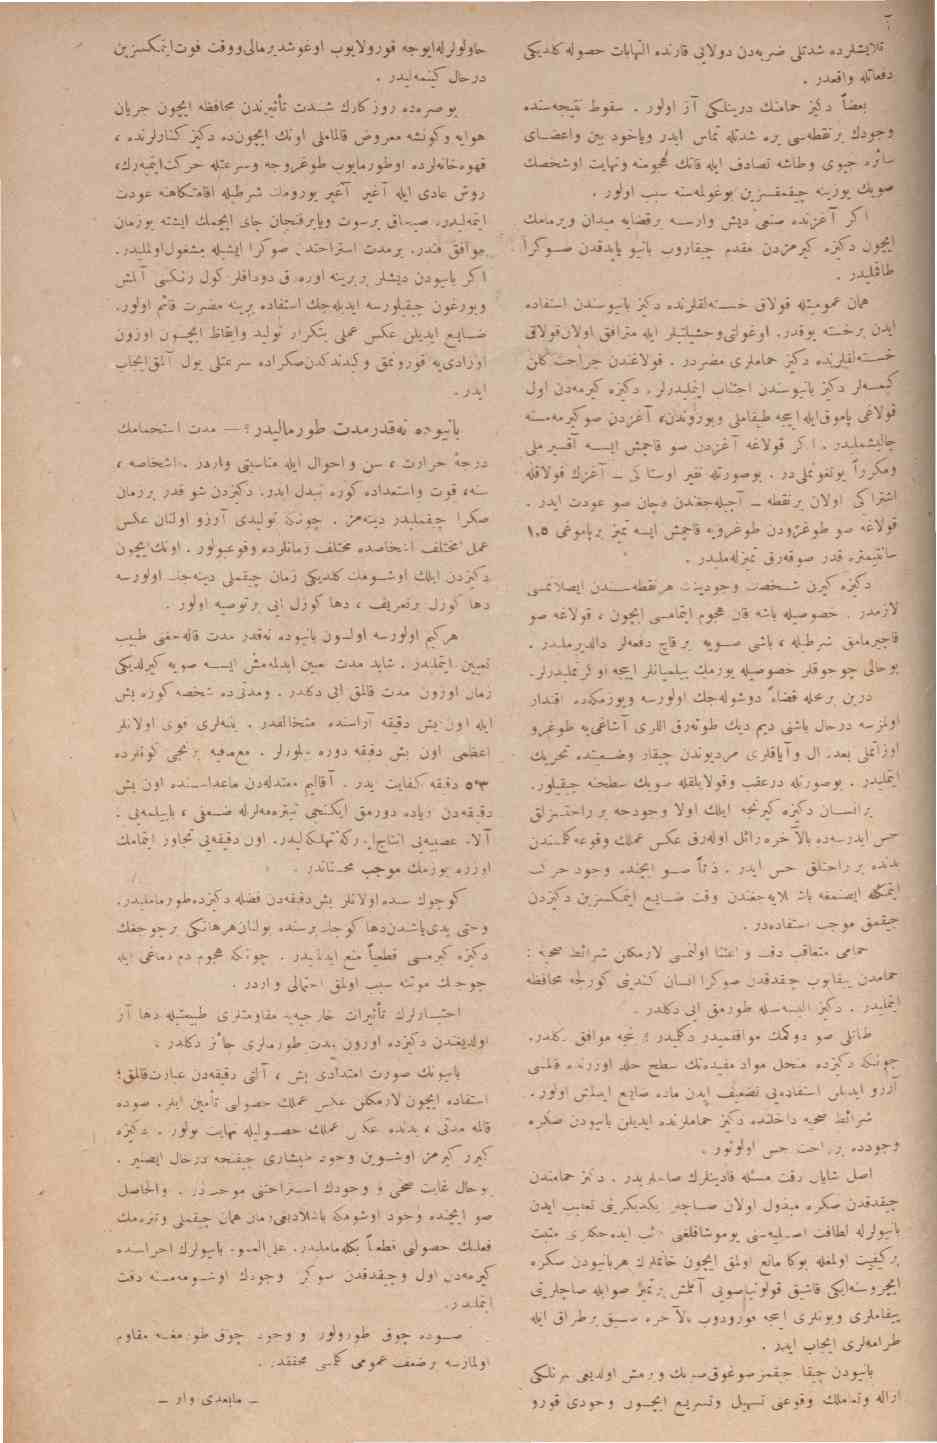 قلایشلرده شدتلی ضربه‌دن دولایی قارنده التهابات حصوله کلدیکی
دفعاتله واقعدر .
بعضاً دکیز حمامنك درینلکی آز اولور . سقوط نتیجه‌سنده
وجودك بر نقطه‌سی یره شدتله تماس ایدر ویاخود بین واعضای
سائره جیوی وطاشه تصادف ایله قانك هجومنه ونهایت اوشخصك
صویك یوزینه چیقمقسزین بوغولمه‌سنه سبب اولور .
اکر آغزنده صنعی دیش وارسه برقضایه میدان ویرمامك
ایچون دکیزه کیرمزدن مقدم چیقاروب بانیو یاپدقدن صوکرا
طاقملیدر .
همان عمومیتله قولاق خسته‌لقلرنده دکیز بانیوسندن استفاده
ایدن برخسته یوقدر . اوغولتی وحشیلتیلر ایله مترافق اولان قولاق
خسته‌لقلرنده دکیز حماملری مضردر . قولاغندن جراحت کلن
کیمسه‌لر دکیز بانیوسندن اجتناب ایتملیدرلر . دکیزه کیرمه‌دن اول
قولاغی پاموق ایله ایجه طیقاملی وبوروندن، آغزدن صو کیرمه‌مسنه
چالیشملیدر . اکر قولاغه آغزدن صو قاچمش ایسه آقسیرملی
ومکرراً یوتغونملی‌در . بوصورتله نفیر اوستاکی - آغزك قولاقله
اشتراکی اولان برنقطه - آجیله‌جغندن قاچان صو عودت ایدر .
قولاغه صو طوغرودن طوغرویه قاچمش ایسه تمیز برپاموغی ۱,۵
سانتیمتره قدر صوقه‌رق تمیزله‌ملیدر .
دکیزه کیرن شخصك وجودینك هرنقطه‌سندن ایصلانمسی
لازمدر . خصوصیله باشه قان هجوم ایتمامسی ایچون ، قولاغه صو
قاچیرمامق شرطیله ، باشی صویه برقاچ دفعه‌لر دالدیرملیدر .
بوحالی چوجوقلر خصوصیله یوزمك بیلمیانلر ایجه اوکرنملیدرلر .
درین برمحله قضاءً دوشوله‌جك اولورسه ویوزمکده اقتدار
اولمزسه درحال باشنی دیم دیك طوته‌رق اللری آشاغی‌یه طوغرو
اوزاتملی بعده ال وآیاقلری مردیوندن چیقار وضعیتده تحریك
ایتملیدر . بوصورتله درعقب وقولایلقله صویك سطحنه چیقیلور .
برانسان دکیزه کیرنجه ایلك اولا وجودجه برراحتسزلق
حس ایدرسه‌ده بالآخره زائل اوله‌رق عکس عملك وقوعه کلمسندن
بدنده برراحتلق حس ایدر . ذاتاً صو ایچنده وجود حرکت
ایتمکله ایصنمغه باشلایه‌جغندن وقت ضایع ایتمکسزین دکیزدن
چیقمق موجب استفاده‌در .
حمامی متعاقب دقت و اعتنا اولنمسی لازمکلن شرائط صحیه :
حمامدن ییقانوب چیقدقدن صوکرا انسان کندینی کوزلجه محافظه
ایتملیدر . دکیز البسه‌سیله طورمق ایی دکلدر .
طاتلی صو دوکمك موافقمیدر دکلمیدر ؟ بنجه موافق دکلدر .
چونکه دکیزده منحل مواد مفیده‌نك سطح جلد اوزرنده قالمسی
آرزو ایدیلن استفاده‌یی تضعیف ایدن ماده ضایع ایدلمش اولور .
شرائط صحیه داخلنده دکیز حماملرنده ایدیلن بانیودن صکره
وجودده بر راحت حس اولونور .
اصل شایان دقت مسئله قادینلرك صاچلریدر . دکیز حمامندن
چیقدقدن صکره مبذول اولان صاچلر یکدیکرینی تعقیب ایدن
بانیولرله لطافت اصلیه‌سنی یوموشاقلغنی غائب ایده‌جکلری مثبت
برکیفیت اولمغله بوکا مانع اولمق ایچون خانملرك هربانیودن صکره
ایچروسنه ایکی قاشیق قولونیا صویی آتلمش برتمیز صوایله صاچلرینی
ییقاملری وبونلری ایجه قورودوب بالآخره سیق برطراق ایله
طرامه‌لری ایجاب ایدر .
بانیودن چیقار چیقمز صوغوق صویك ویرمش اولدیغی سرنلکی
ازاله وتعاملك وقوعنی تسهیل وتسریع ایچون وجودی قورو
حاولولرله ایوجه قورولایوب اوغوشدیرمالی ووقت فوت ایتمکسزین
درحال کینمه‌لیدر .
بوصره‌ده روزکارك شدت تأثیرندن محافظه ایچون جریان
هوایه وکونشه معروض قالمامالی اونك ایچون‌ده دکیز کنارلرنده ،
قهوه‌خانه‌لرده اوطورمایوب طوغروجه وسرعتله حرکت ایتمیه‌رك،
روش عادی ایله آغیر آغیر یورومك شرطیله اقامتگاهنه عودت
ایتمه‌لیدر. صیجاق برسوت ویابرفنجان چای ایچمك ایشته بوزمان
موافق فندر. برمدت استراحتدن صوکرا ایشیله مشغول اولملیدر.
اکر بانیودن دیشلر بربرینه اوره‌رق دوداقلر کول رنکنی آلمش
ویورغون چیقیلورسه ایدیله‌جك استفاده یرینه مضرت قائم اولور.
ضایع ایدیلن عکس عملی بتکرار تولید وایقاظ ایچون اوزون
اوزادی‌یه قورونمق وکیندکدن صکراده سرعتلی یول آلمق ایجاب
ایدر .
بانیوده نه‌قدر مدت طورمالیدر ؟ — مدت استحمامك
درجهٔ حرارت ، سن و احوال ایله مناسبتی واردر . اشخاصه ،
سنه، قوت واستعداده کوره تبدل ایدر. دکیزدن شو قدر برزمان
صکرا چیقملیدر دینه‌مز . چونکه تولیدی آرزو اولنان عکس
عمل مختلف اشخاصده مختلف زمانلرده وقوعبولور . اونك ایچون
دکیزدن ایلك اوشومك کلدیکی زمان چیقملی دینه‌جك اولورسه
دها کوزل برتعریف ، دها کوزل ایی برتوصیه اولور .
هرکیم اولورسه اولسون بانیوده نه‌قدر مدت قاله‌جغنی طبیب
تعیین ایتملیدر . شاید مدت تعیین ایدلمه‌مش ایسه صویه کیرلدیکی
زمان اوزون مدت قالمق ایی دکلدر . ومدتی‌ده شخصه کوره بش
ایله اون بش دقیقه آراسنده متخالفدر . بنیه‌لری قوی اولانلر
اعظمی اون بش دقیقه دوره بیلورلر . مع‌مافیه برنجی کونلرده
۳-۵ دقیقه کفایت ایدر . اقالیم معتدله‌دن ماعداسنده اون بش
دقیقه‌دن زیاده دورمق ایکنجی تیتره‌مه‌لرله ضعفی ، بایبلمه‌یی ،
آلام عصبیه‌یی انتاج ایدرکه تهلکه‌لیدر. اون دقیقه‌یی تجاوز ایتمامك
اوزره یوزمك موجب محسناتدر .
کوچوك سنده اولانلر بش دقیقه‌دن فضله دکیزده طورماملیدر.
وحتی یدی یاشندن دها کوچك برسنده بولنان هرهانکی برچوجغك
دکیزه کیرمسی قطعیاً منع ایدلملیدر . چونکه هجوم دم دماغی ایله
چوجغك موتنه سبب اولمق احتمالی واردر .
اختیارلرك تأثیرات خارجیه‌یه مقاومتلری طبیعتیله دها آز
اولدیغندن دکیزده اوزون مدت طورمالری جائز دکلدر .
بانیونك صورت امتدادی بش ، آلتی دقیقه‌دن عبارت قالمق؛
استفاده ایچون لازمکلن عکس عملك حصولنی تأمین ایلر . صوده
قالمه مدتی ، بدنده عکس عملك حصولیله نهایت بولور . دکیزه
کیرر کیرمز اوشوین وجود طیشاری چیقنجه درحال ایصنیر .
بوحال غایت صحی و وجودك استراحتنی موجبدر . والحاصل
صو ایچنده وجود اوشومکه باشلادیغی زمان همان چیقملی وتتره‌مك
فعلنك حصولنی قطعیاً بکله‌ماملیدر. علی‌العموم بانیولرك اجراسنده
کیرمه‌دن اول وچیقدقدن صوکرا وجودك اوشومه‌مسنه دقت
ایتملیدر.
صوده چوق طورولور و وجود چوق طورمغه مقاوم
اولمازسه برضعف عمومی کلمسی محققدر .
- مابعدی وار -